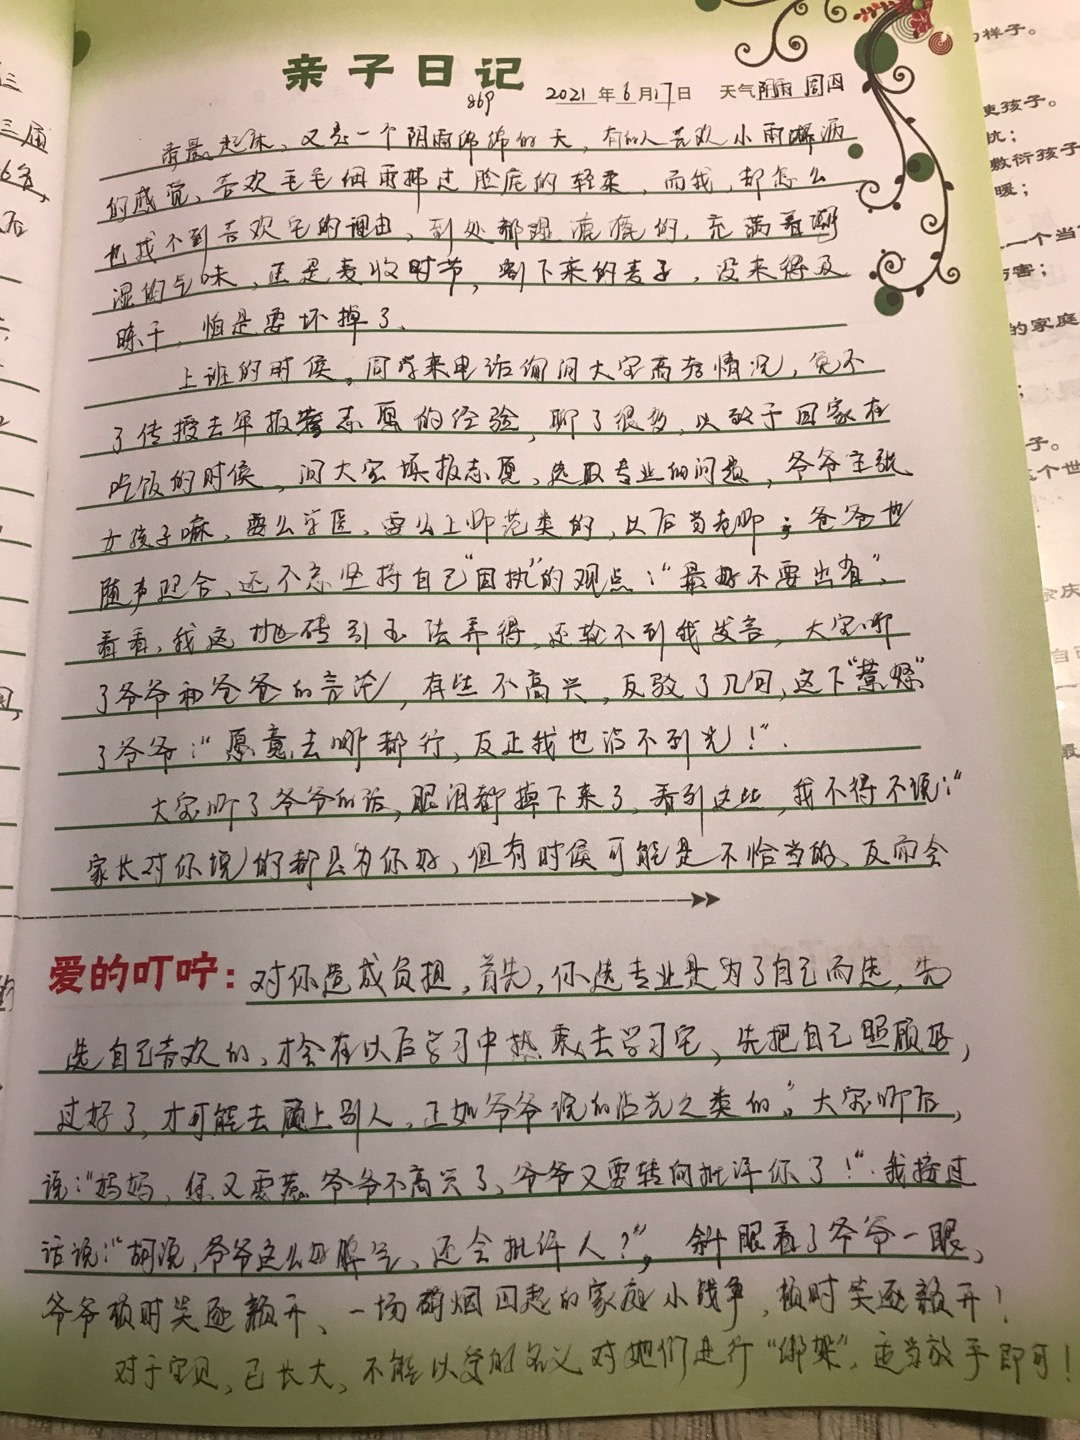 亲子日记
869
2021年6月17日 天气阴雨 周四
清晨起床，又是一个阴雨绵绵的天，有的人喜欢小雨淋洒
的感觉，喜欢毛毛细雨拂过脸庞的轻柔，而我，却怎么
也找不到喜欢它的理由，到处都湿漉漉的，充满着潮
湿的气味，正是麦收时节，割下来的麦子，没来得及
晾干，怕是要坏掉了。
上班的时候，同学来电话询问大宝高考情况，免不
了传授去年报考志愿的经验，聊了很多，以致于回家在
吃饭的时候，问大宝填报志愿、选取专业的问题，爷爷主张
女孩子嘛，要么学医，要么上师范类的，以后当老师；爸爸也
随声迎合，还不忘坚持自己"固执"的观点："最好不要出省"，
看看，我这抛砖引玉法弄得，还轮不到我发言，大宝听
了爷爷和爸爸的言论，有些不高兴，反驳了几句，这下"惹怒"
了爷爷："愿意去哪都行，反正我也沾不到光！"。
大宝听了爷爷的话，眼泪都掉下来了，看到这些，我不得不说："
家长对你说的都是为你好，但有时候可能是不恰当的，反而会
爱的叮咛：对你造成负担，首先，你选专业是为了自己而选，先
选自己喜欢的，才会在以后学习中热衷去学习它，先把自己照顾好，
过好了，才可能去顾上别人，正如爷爷说的沾光之类的。"大宝听后，
说："妈妈，你又要惹爷爷不高兴了，爷爷又要转向批评你了！"我接过
话说："胡说，爷爷这么好脾气，还会批评人？"，斜眼看了爷爷一眼，
爷爷顿时笑逐颜开、一场硝烟四起的家庭小战争，顿时笑逐颜开！
对于宝贝，已长大，不能以爱的名义对她们进行"绑架"，适当放手即可！